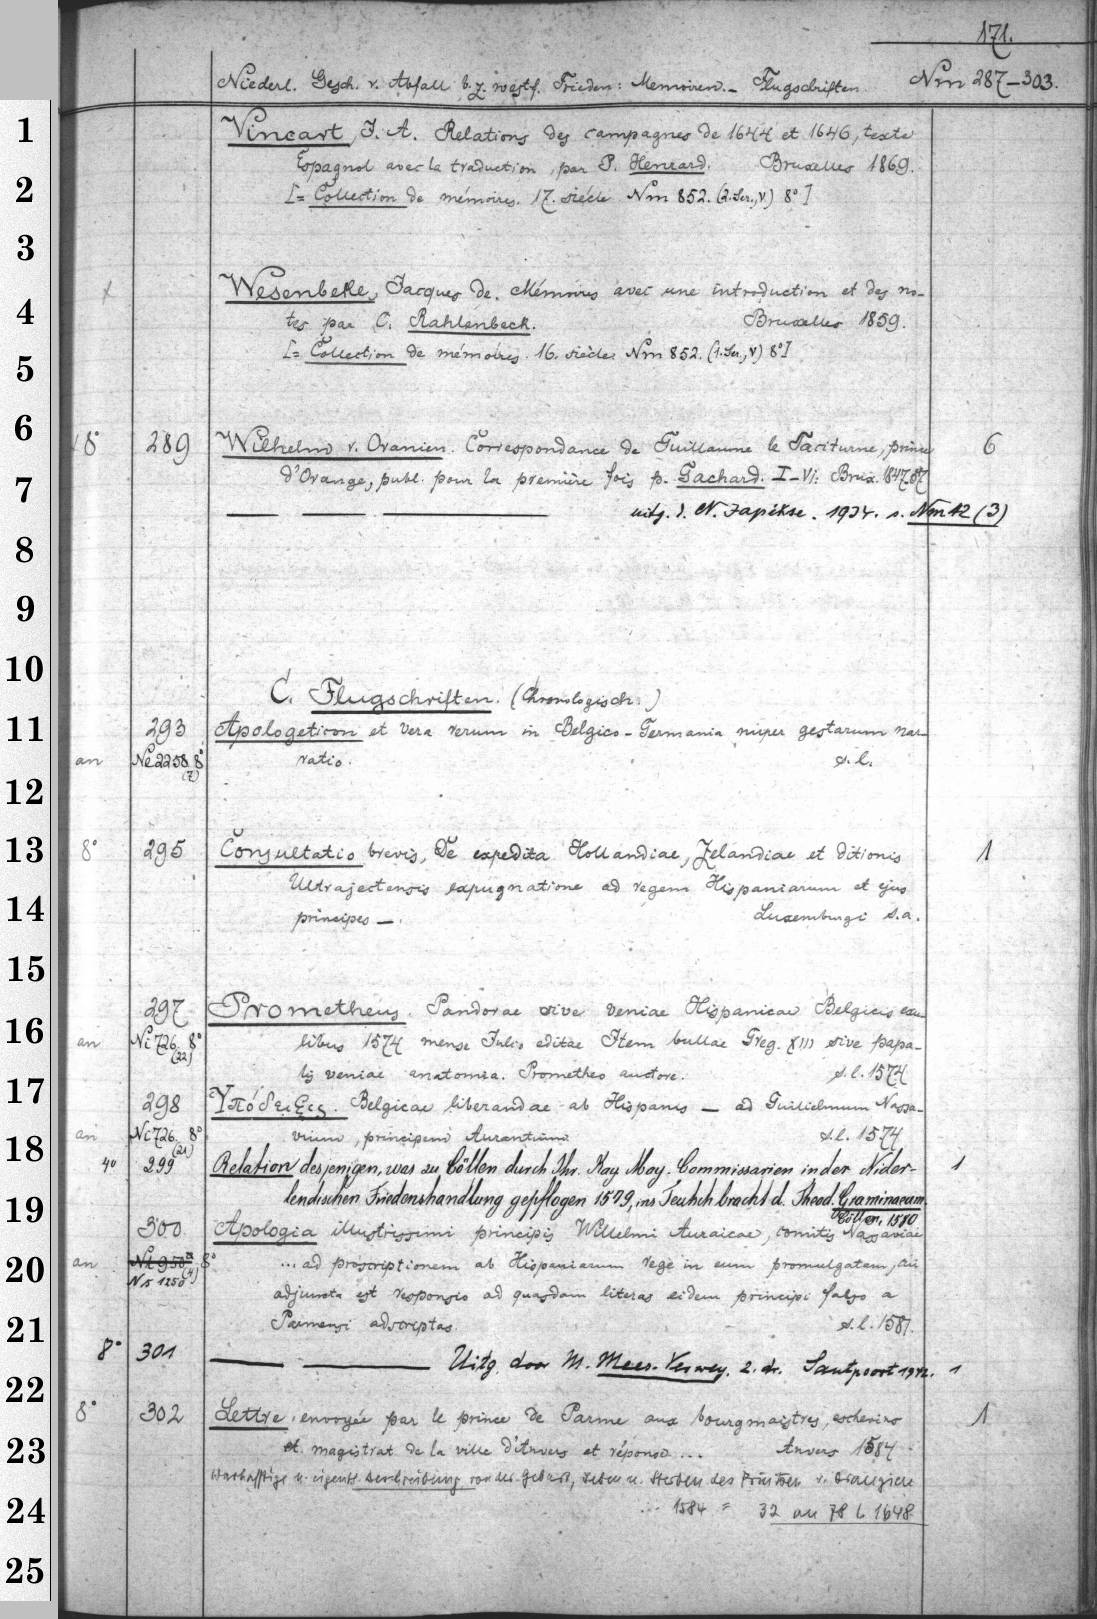 171.
Niederl. Gesch. v. Abfall b. z. westf. Frieden: Memoiren. – Flugschriften. Nm 287–303.
1 Vincart, J. A. Relations des campagnes de 1644 et 1646, texte
Espagnol avec la traduction, par P. Henrard. Bruxelles 1869.
2 [= Collection de mémoires. 17. siécle Nm 852. (2. Ser., V) 8° ]
3
Wesenbeke, Jacques de. Mémoires avec une introduction et des no-
4 tes par C. Rahlenbeck. Bruxelles 1859.
5 [= Collection de mémoires. 16. siècle. Nm 852. (1. Ser., V) 8°]
6 8° 289 Wilhelm v. Oranien. Correspondance de Guillaume le Taciturne, prince 6
7 d'Orange, publ. pour la première fois p. Gachard. I–VI. Brux. 1847-57
— — — uitg. d. N. Japikse. 1934. s. Nm 42 (3)
8
9
10
C. Flugschriften. (Chronologisch.)
11 293 Apologeticon et vera rerum in Belgico-Germania nuper gestarum nar-
an Ne 2258 8° ratio. s. l.
(7)
12
13 8° 295 Consultatio brevis, De expedita Hollandiae, Zelandiae et ditionis 1
Ultrajectensis expugnatione ad regem Hispaniarum et ejus
14 principes —. Luxemburgi s. a.
15
297 Prometheus. Pandorae sive veniae Hispanicae Belgicis exu-
16 an Ni 726. 8° libus 1574 mense Julio editae Item bullae Greg. XIII sive papa-
(22)
17 lis veniae anatomia. Prometheo auctore. s. l. 1574
298 Ὑπόδειξις. Belgicae liberandae ab Hispanis — ad Guilielmum Nassa-
an Ni 726. 8° vium, principem Aurantium s. l. 1574
(21)
18 4° 299 Relation desjenigen, was zu Cöllen durch Ihr. Kay. May. Commissarien in der Nider- 1
19 lendischen Friedenshandlung gepflogen 1579, ins Teutsch bracht d. Theod. Graminaeum.
Cöllen, 1580
300 Apologia illustrissimi principis Willelmi Auraicae, comitis Nassaviae
20 an 8° ... ad proscriptionem ab Hispaniarum rege in eum promulgatam, cui
Ns 1250 (4)
adjuncta est responsio ad quasdam literas eidem principi falso a
21 Parmensi adscriptas. s. l. 1581.
8° 301 — — Uitg. door M. Mees-Verwey. 2. dr. Santpoort 1942. 1
22 8° 302 Lettre envoyée par le prince de Parme aux bourgmaistres, eschevins 1
23 et magistrat de la ville d'Anvers et réponse ... Anvers 1584
Warhafftige u. eigentl. Beschreibung von der Geburt, Leben u. Sterben des Printzen v. Orangien
24 ... 1584 = 32 an 78 L 1648
25